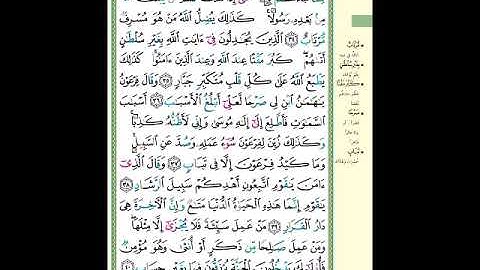 مِنۢ بَعْدِهِۦ رَسُولًا ۚ كَذَٰلِكَ يُضِلُّ ٱللَّهُ مَنْ هُوَ مُسْرِفٌ
مُّرْتَابٌ ٣٤ ٱلَّذِينَ يُجَٰدِلُونَ فِىٓ ءَايَٰتِ ٱللَّهِ بِغَيْرِ سُلْطَٰنٍ
أَتَىٰهُمْ ۖ كَبُرَ مَقْتًا عِندَ ٱللَّهِ وَعِندَ ٱلَّذِينَ ءَامَنُوا۟ ۚ كَذَٰلِكَ
يَطْبَعُ ٱللَّهُ عَلَىٰ كُلِّ قَلْبِ مُتَكَبِّرٍ جَبَّارٍ ٣٥ وَقَالَ فِرْعَوْنُ
يَٰهَٰمَٰنُ ٱبْنِ لِى صَرْحًا لَّعَلِّىٓ أَبْلُغُ ٱلْأَسْبَٰبَ ٣٦ أَسْبَٰبَ
ٱلسَّمَٰوَٰتِ فَأَطَّلِعَ إِلَىٰٓ إِلَٰهِ مُوسَىٰ وَإِنِّى لَأَظُنُّهُۥ كَٰذِبًا ۚ
وَكَذَٰلِكَ زُيِّنَ لِفِرْعَوْنَ سُوٓءُ عَمَلِهِۦ وَصُدَّ عَنِ ٱلسَّبِيلِ ۚ
وَمَا كَيْدُ فِرْعَوْنَ إِلَّا فِى تَبَابٍ ٣٧ وَقَالَ ٱلَّذِىٓ
ءَامَنَ يَٰقَوْمِ ٱتَّبِعُونِ أَهْدِكُمْ سَبِيلَ ٱلرَّشَادِ ٣٨
يَٰقَوْمِ إِنَّمَا هَٰذِهِ ٱلْحَيَوٰةُ ٱلدُّنْيَا مَتَٰعٌ وَإِنَّ ٱلْءَاخِرَةَ هِىَ
دَارُ ٱلْقَرَارِ ٣٩ مَنْ عَمِلَ سَيِّئَةً فَلَا يُجْزَىٰٓ إِلَّا مِثْلَهَا ۖ
وَمَنْ عَمِلَ صَٰلِحًا مِّن ذَكَرٍ أَوْ أُنثَىٰ وَهُوَ مُؤْمِنٌ
فَأُو۟لَٰٓئِكَ يَدْخُلُونَ ٱلْجَنَّةَ يُرْزَقُونَ فِيهَا بِغَيْرِ حِسَابٍ ٤٠